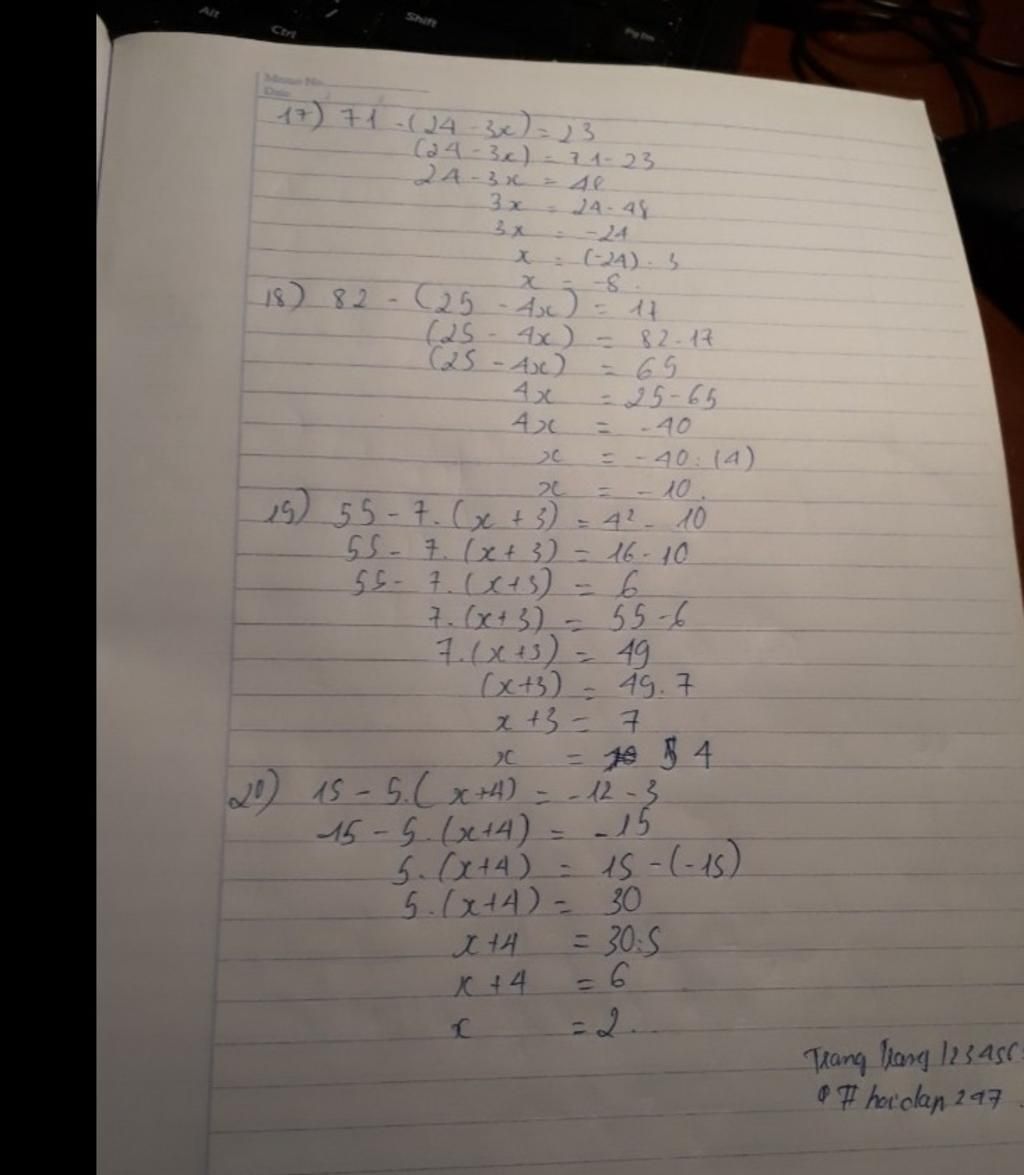 Alt
Ctrl
Shift
Pg Dn
Memo No.
Date
17) 71 - (24 - 3x) = 23
(24 - 3x) = 71 - 23
24 - 3x = 48
3x = 24 - 48
3x = -24
x = (-24) : 3
x = -8.
18) 82 - (25 - 4x) = 17
(25 - 4x) = 82 - 17
(25 - 4x) = 65
4x = 25 - 65
4x = -40
x = -40 : (4)
x = -10.
19) 55 - 7.(x + 3) = 4² - 10
55 - 7.(x + 3) = 16 - 10
55 - 7.(x+3) = 6
7.(x+3) = 55 - 6
7.(x+3) = 49
(x+3) = 49 : 7
x + 3 = 7
x = 4
20) 15 - 5.(x+4) = -12 - 3
15 - 5.(x+4) = -15
5.(x+4) = 15 - (-15)
5.(x+4) = 30
x + 4 = 30 : 5
x + 4 = 6
x = 2.
Trang Trang 123456
# hoidap 247